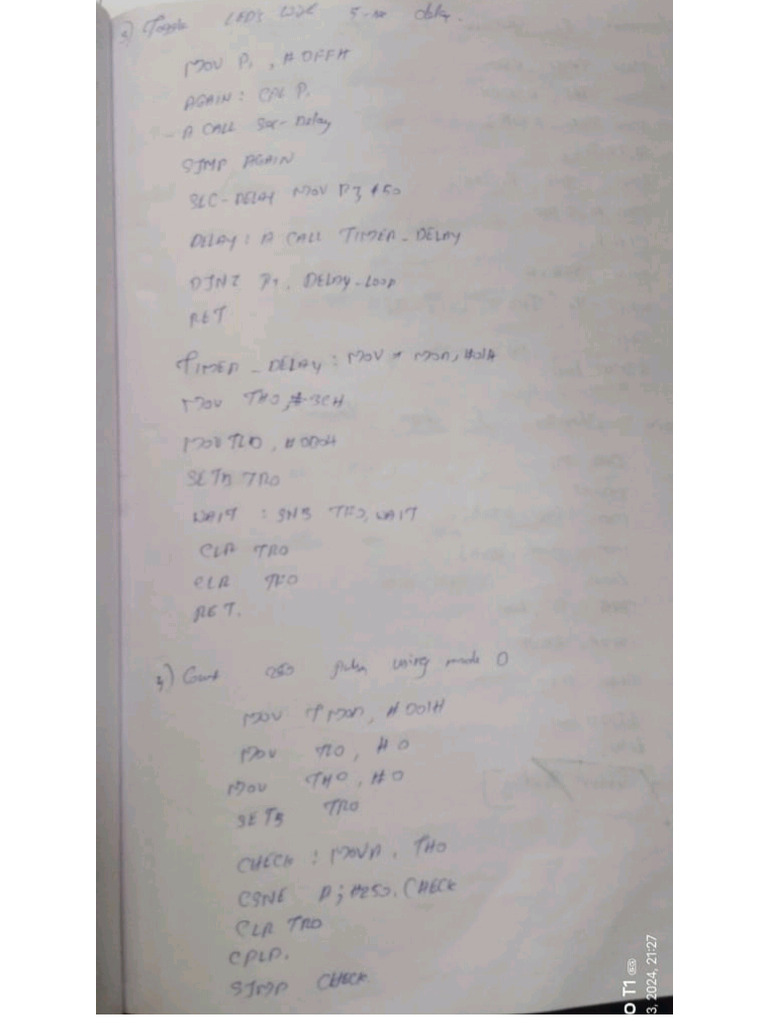 3) Toggle LED's with 5-sec delay.
MOV P1, #0FFH
AGAIN: CPL P1
A CALL Sec-Delay
SJMP AGAIN
SEC-DELAY MOV R7, #50
DELAY: A CALL TIMER_DELAY
DJNZ R7, DELAY-LOOP
RET
TIMER_DELAY: MOV MOD, #01H
MOV TH0, #3CH
MOV TL0,
SETB TR0
WAIT : JNB TF0, WAIT
CLR TR0
CLR TF0
RET.
4) Count 250 pulse using mode 0
MOV TMOD, #001H
MOV Tl0, #0
MOV TH0, #0
SETB TR0
CHECK : MOVA, TH0
CJNE A; #250, CHECK
CLR TR0
CPLP.
SJMP CHECK
O T1
3, 2024, 21:27